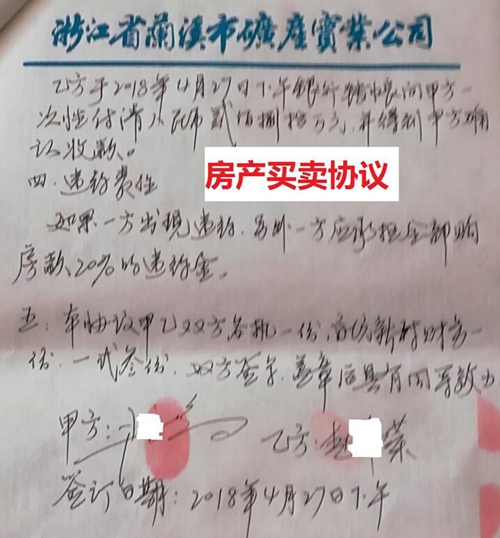 浙江省蘭溪市礦産實業公司
乙方于2018年4月27日下午银行转帐向甲方一
次性付清人民币贰佰捌拾万元,并得到甲方确
认收款。
四.违约责任
房产买卖协议
如果一方出现违约,另外一方应承担全部购
房款20%的违约金。
五:本协议甲乙双方各执一份,
份.一式叁份.双方签字,盖章后具有同等效力
甲方:
乙方:赵 荣
签订日期:2018年4月27日下午